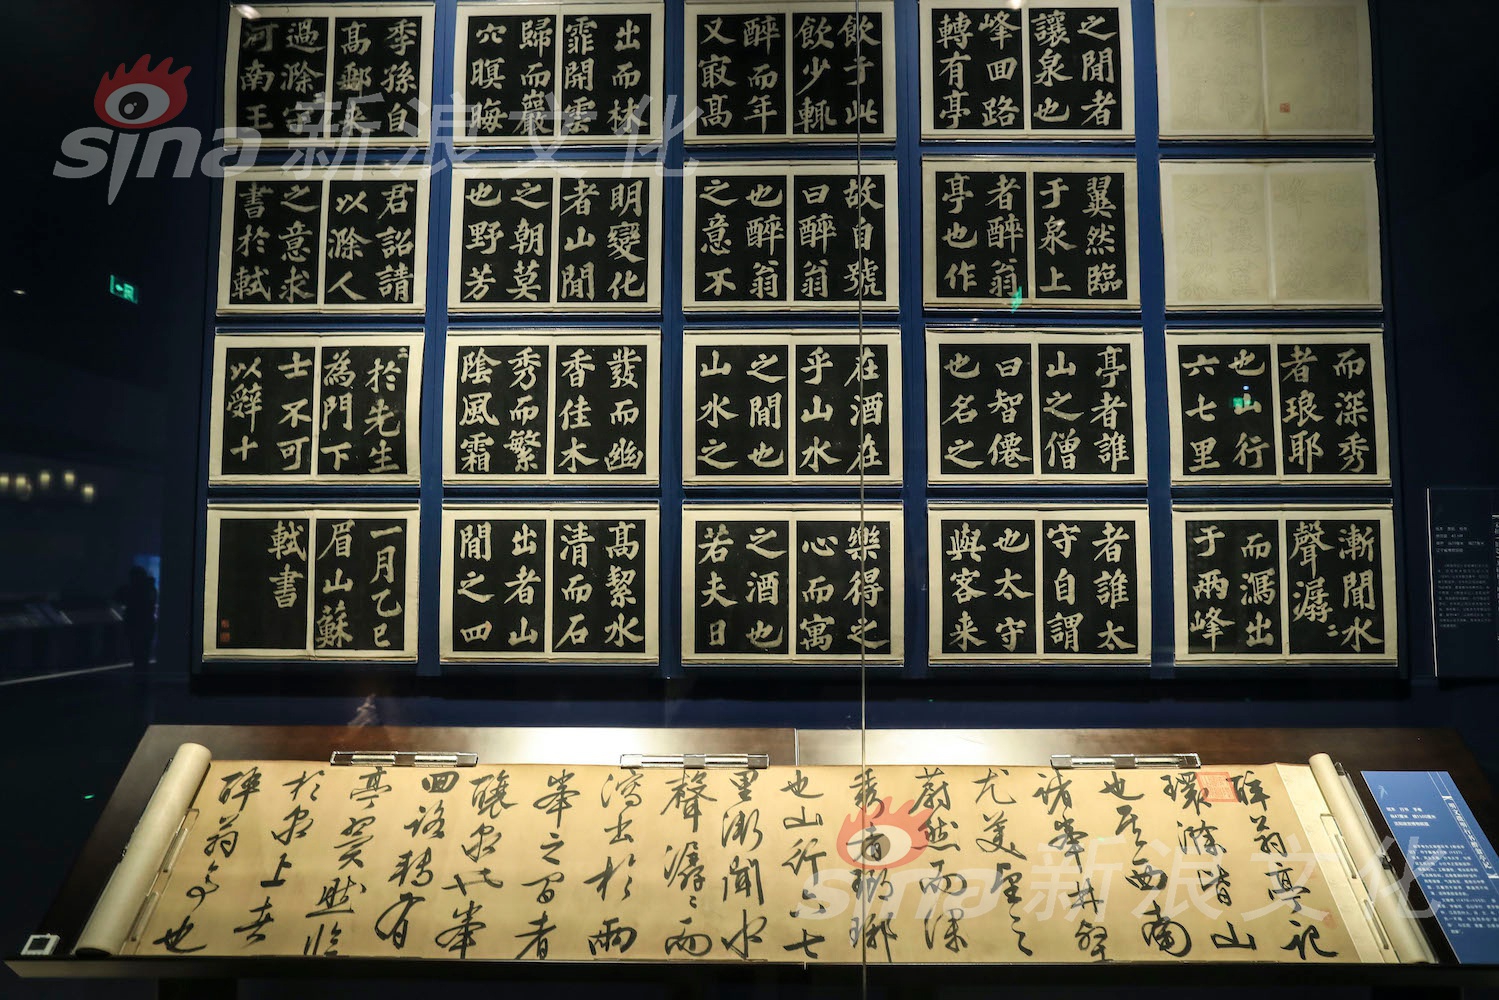 而深秀
者琅耶
也山行
六七里
漸聞水
聲潺〻
而瀉出
于兩峰
之間者
讓泉也
峰回路
轉有亭
翼然臨
于泉上
者醉翁
亭也作
亭者誰
山之僧
曰智僊
也名之
者誰太
守自謂
也太守
與客来
飲于此
飲少輒
醉而年
又㝡高
故自號
曰醉翁
也醉翁
之意不
在酒在
乎山水
之間也
山水之
樂得之
心而寓
之酒也
若夫日
出而林
霏開雲
歸而巖
穴暝晦
明變化
者山間
之朝莫
也野芳
發而幽
香佳木
秀而繁
陰風霜
高絜水
清而石
出者山
間之四
季孫自
高郵来
過滁守
河南王
君詔請
以滁人
之意求
書於軾
〻於先生
為門下
士不可
以辭十
一月乙巳
眉山蘇
軾書
醉翁亭記
環滁皆山
也其西南
諸峯林壑
尤美望之
蔚然而深
秀者瑯琊
也山行六七
里漸聞水
聲潺〻而
瀉出於兩
峯之間者
釀泉也峯
回路轉有
亭翼然臨
於泉上者
醉翁亭也
sina新浪文化
sina新浪文化